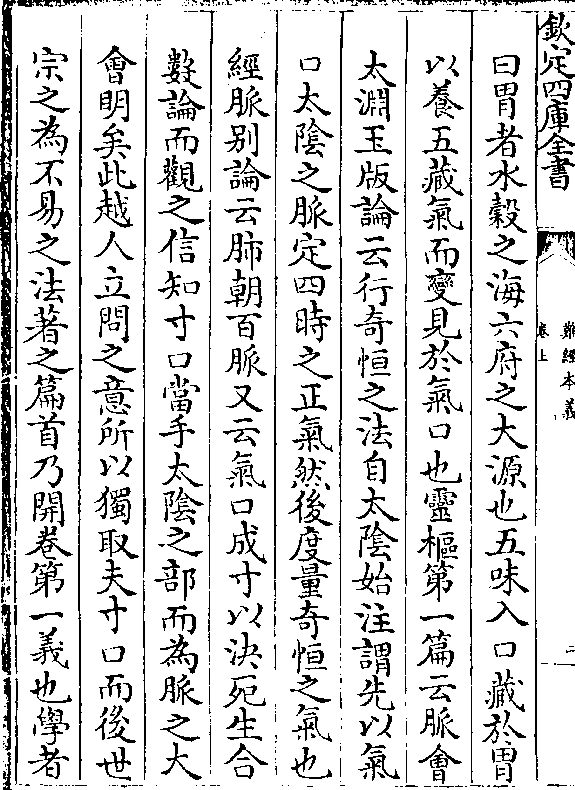 欽定四庫全書
難經本義
卷上
二
曰胃者水穀之海六府之大源也五味入口藏於胃
以養五藏氣而變見於氣口也靈樞第一篇云脈會
太淵玉版論云行奇恒之法自太陰始注謂先以氣
口太陰之脈定四時之正氣然後度量奇恒之氣也
經脈别論云肺朝百脈又云氣口成寸以決死生合
數論而觀之信知寸口當手太陰之部而為脈之大
會明矣此越人立問之意所以獨取夫寸口而後世
宗之為不易之法著之篇首乃開卷第一義也學者